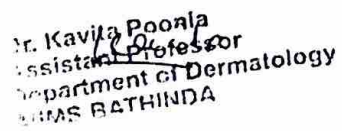 Dr. Kavita Poonia
Assistant Professor
Department of Dermatology
AIIMS BATHINDA